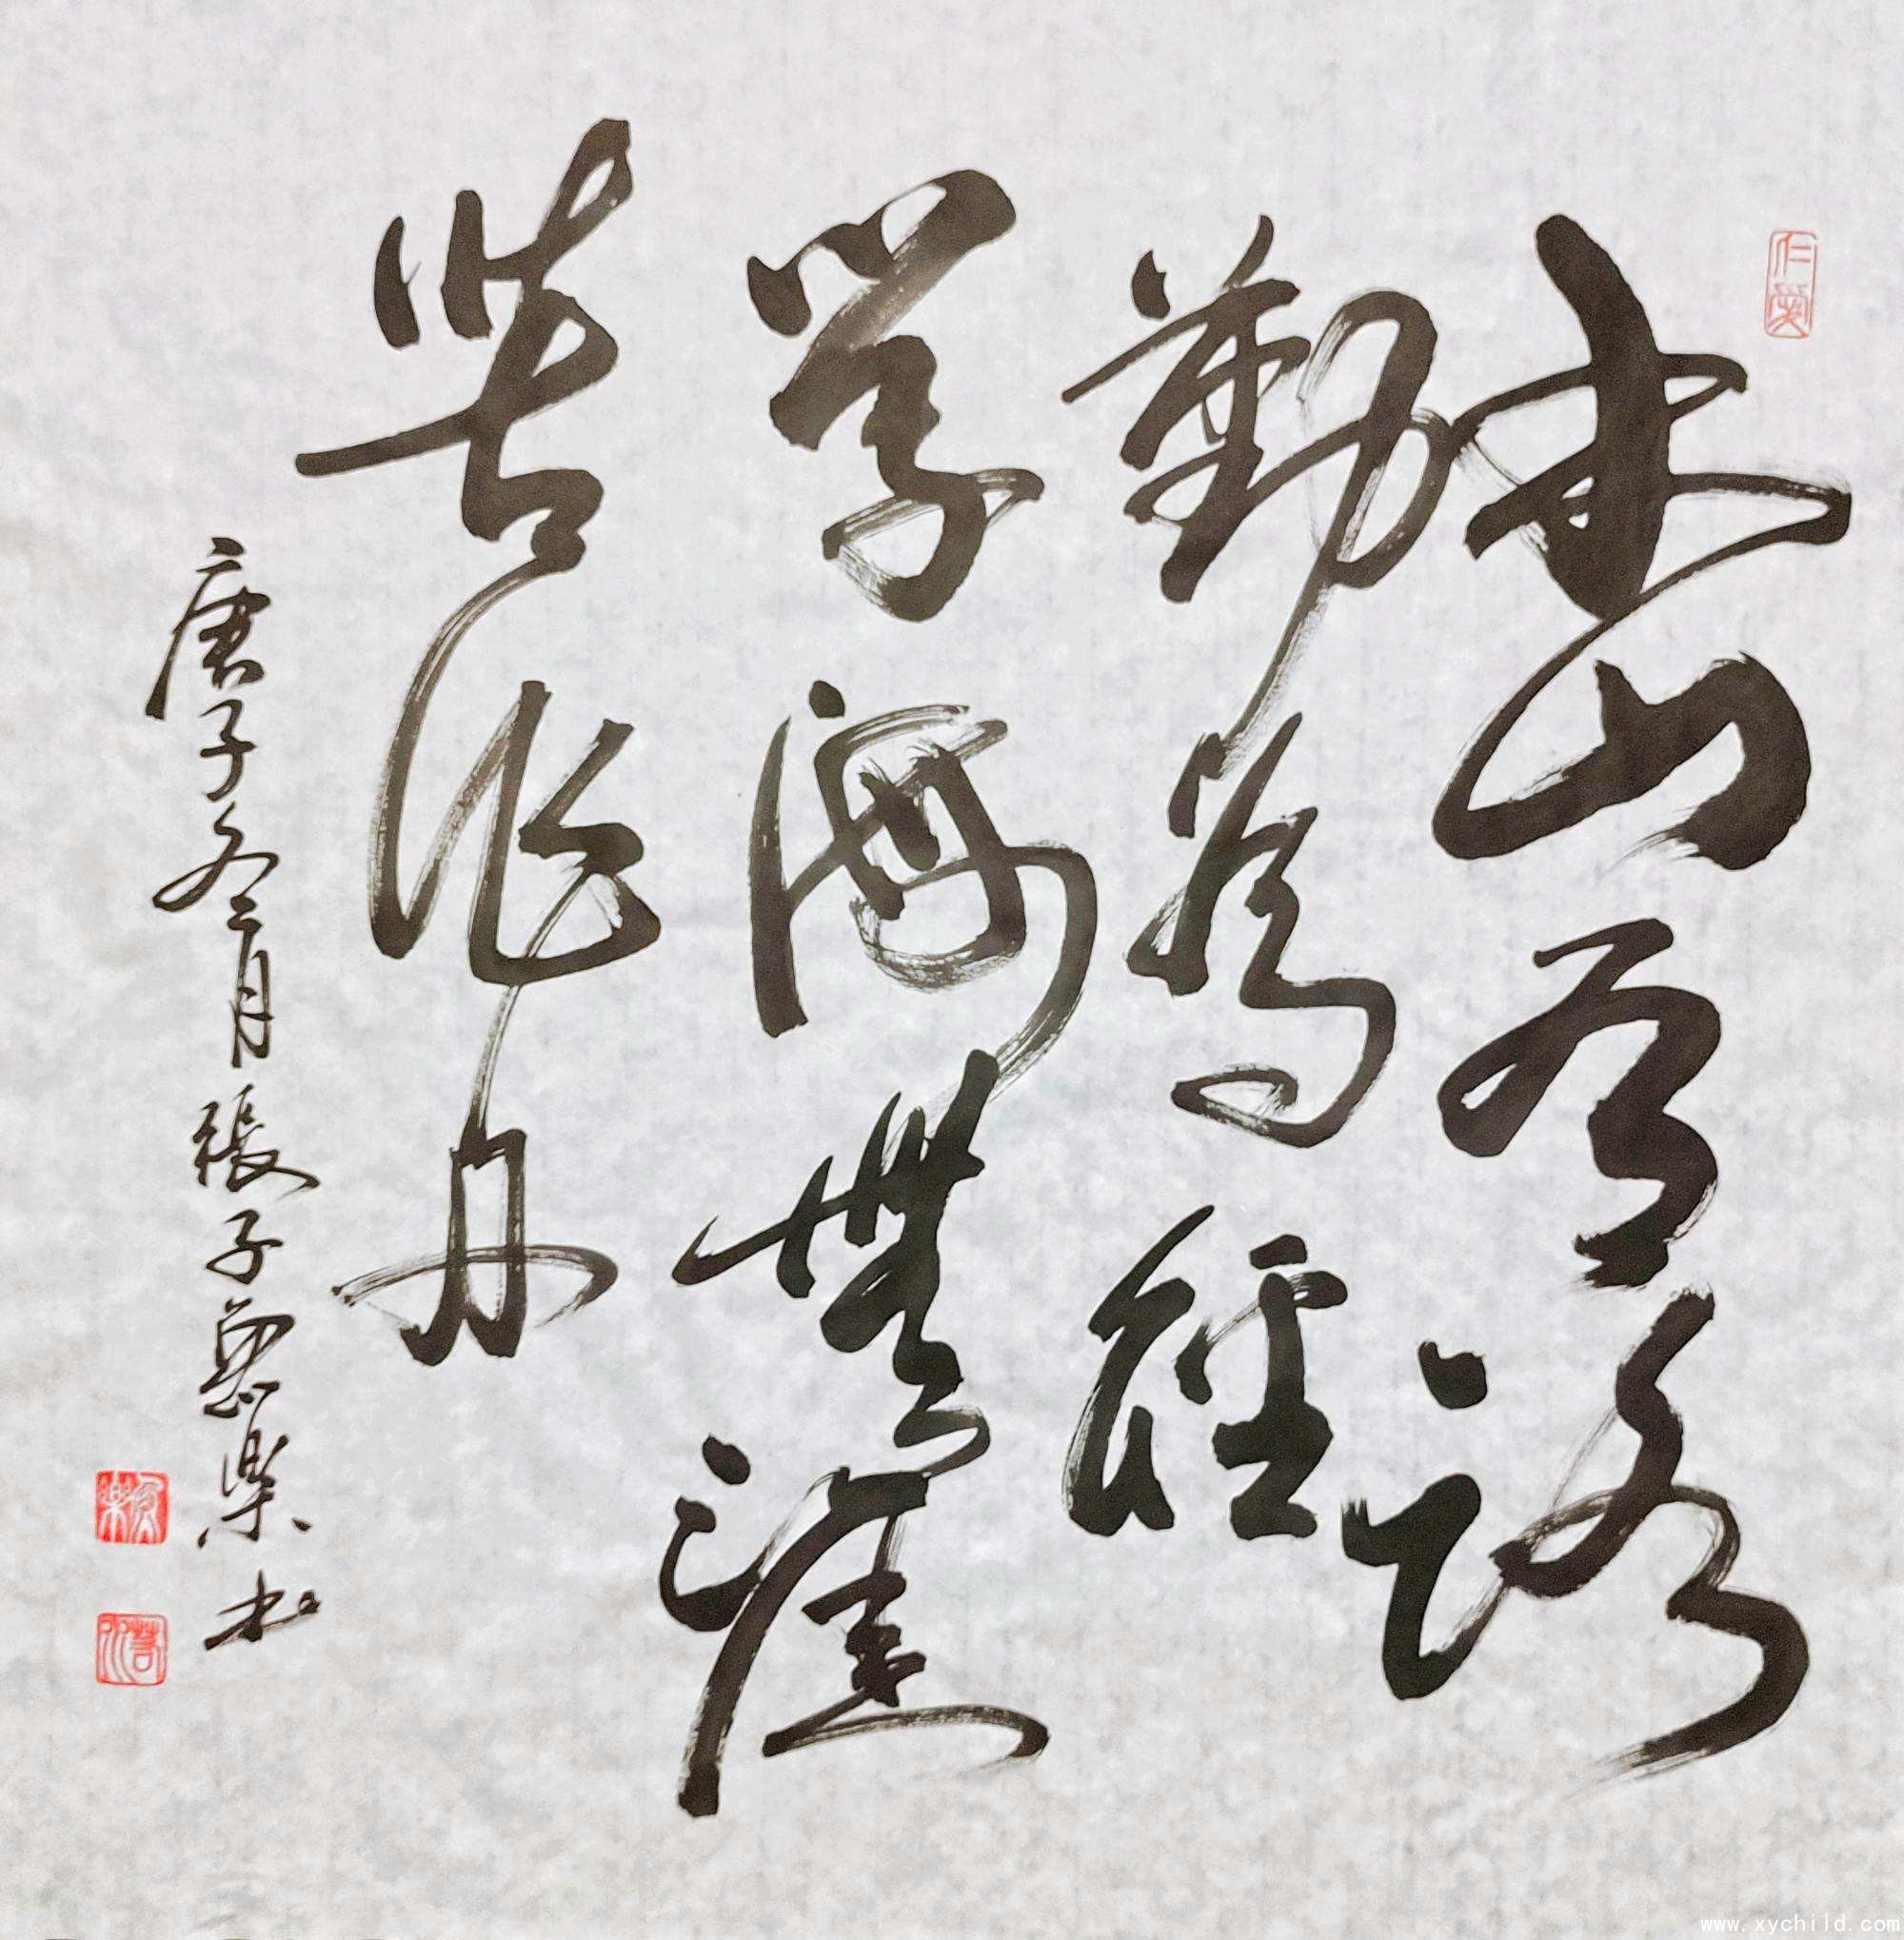 書山有路
勤為徑
學海無涯
苦作舟
庚子冬月張子魚樂書
仁愛
www.xychild.com